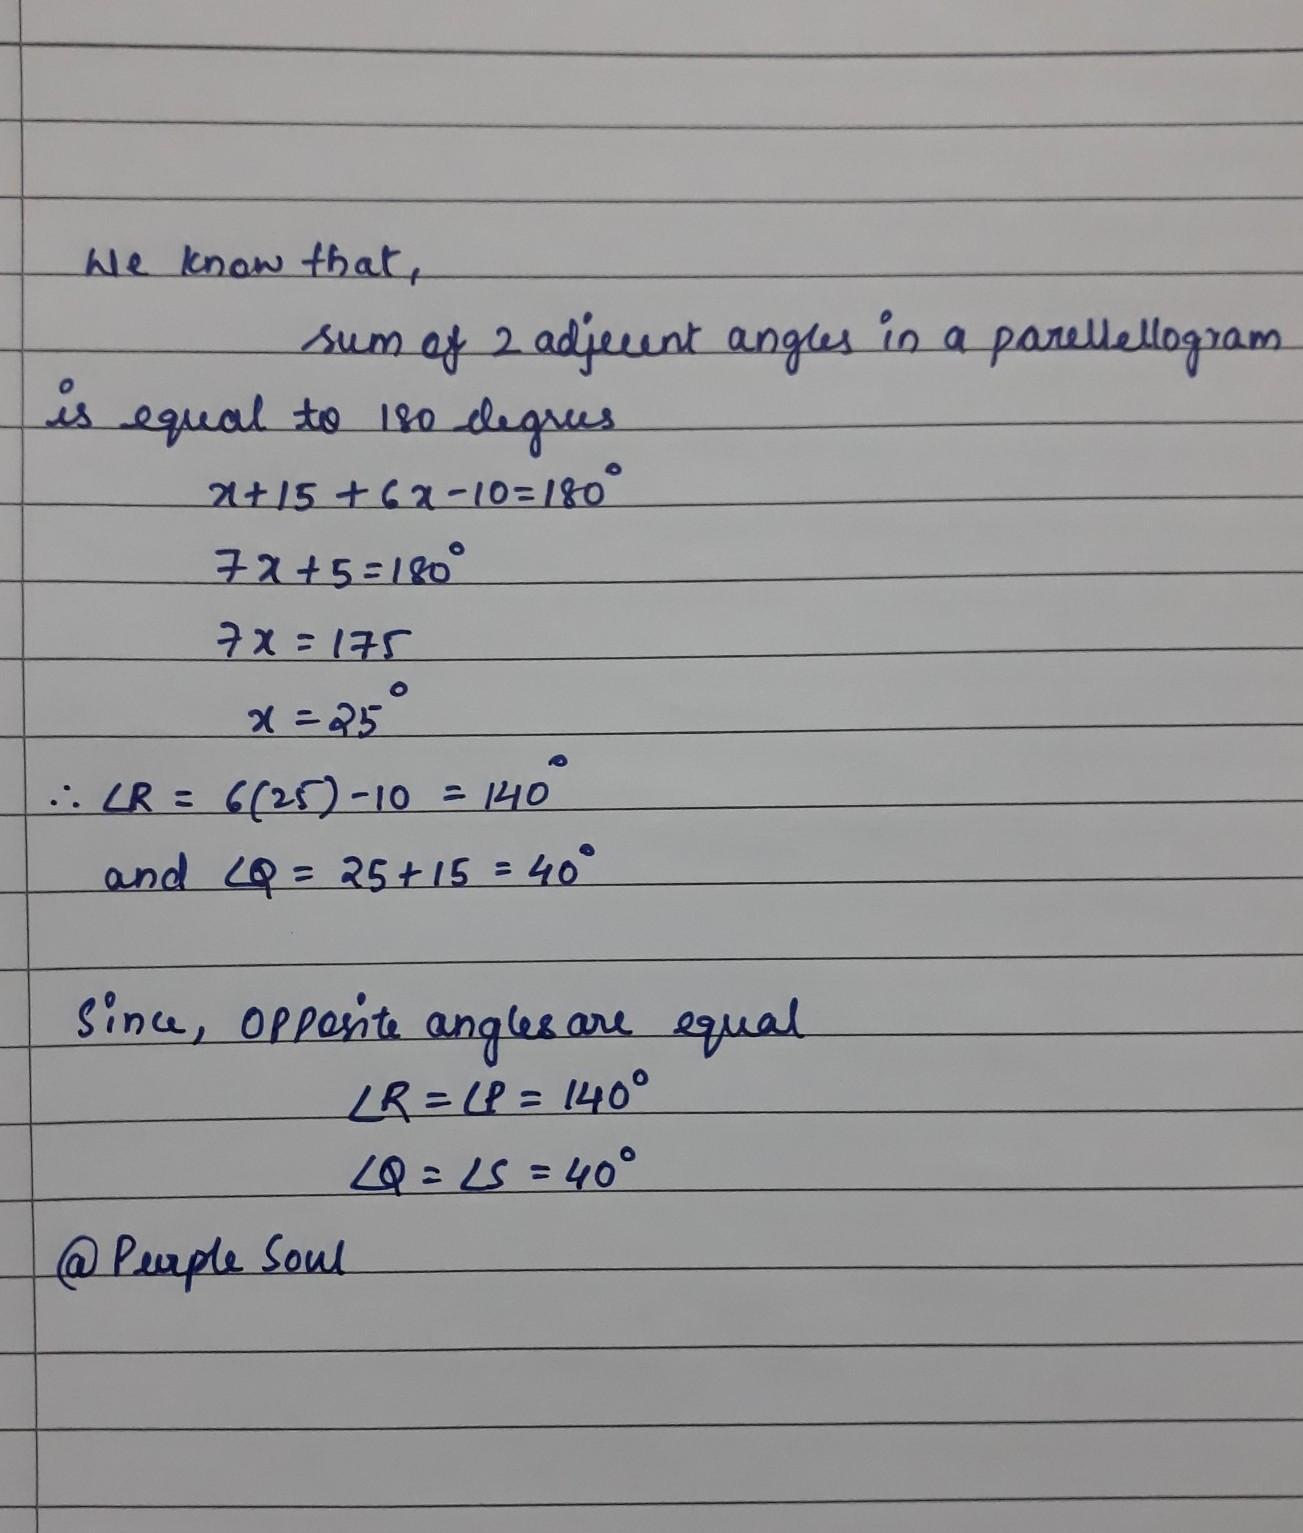 We know that,
sum of 2 adjecent angles in a parellellogram
is equal to 180 degrees
x+15 + 6x-10=180°
7x+5=180°
7x = 175
x = 25°
∴ ∠R = 6(25)-10 = 140°
and ∠Q = 25+15 = 40°
Since, opposite angles are equal
∠R = ∠P = 140°
∠Q = ∠S = 40°
@Purple Soul